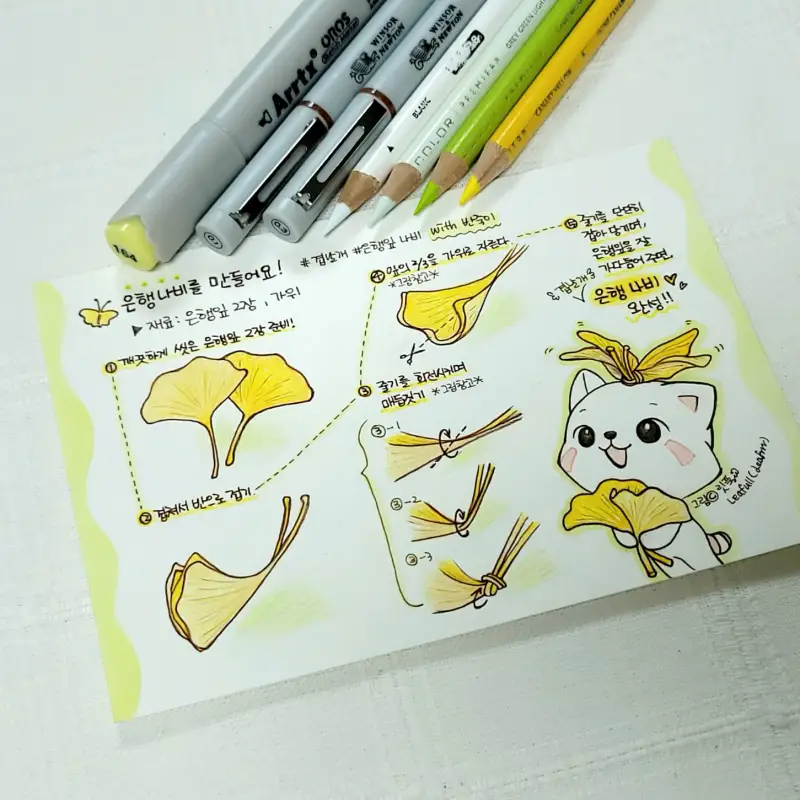 Arrtx® OROS
WINSOR & NEWTON
WINSOR & NEWTON
BLANC
COLOR PREMIER
GREY GREEN LIGHT
CANARY YELLOW
164
01
03
은행 나비를 만들어요!
#겹날개 #은행잎 나비 with 반죽이
▶ 재료: 은행잎 2장, 가위
① 깨끗하게 씻은 은행잎 2장 준비!
② 겹쳐서 반으로 접기
③ 줄기를 회전시키며
매듭짓기 *그림참고*
③-1
③-2
③-3
④ 잎의 2/3을 가위로 자른다
*그림참고*
⑤ 줄기를 단단히
잡아 당기며,
은행잎을 잘
가다듬어 주면,
겹날개
은행 나비
완성!!
그림©잇플
Leafull(Leafm)